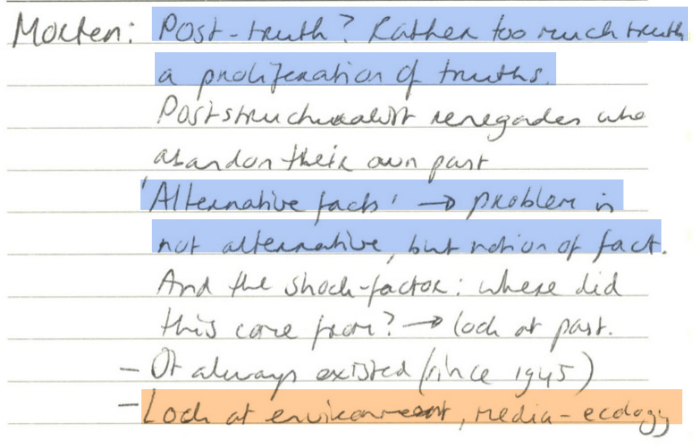 Morten: Post-truth? Rather too much truth
a proliferation of truths.
Poststructuralist renegades who
abandon their own part
'Alternative facts' → problem is
not alternative, but notion of fact.
And the shock-factor: where did
this come from? → look at past.
- It always existed (since 1945)
- Look at environment, media-ecology